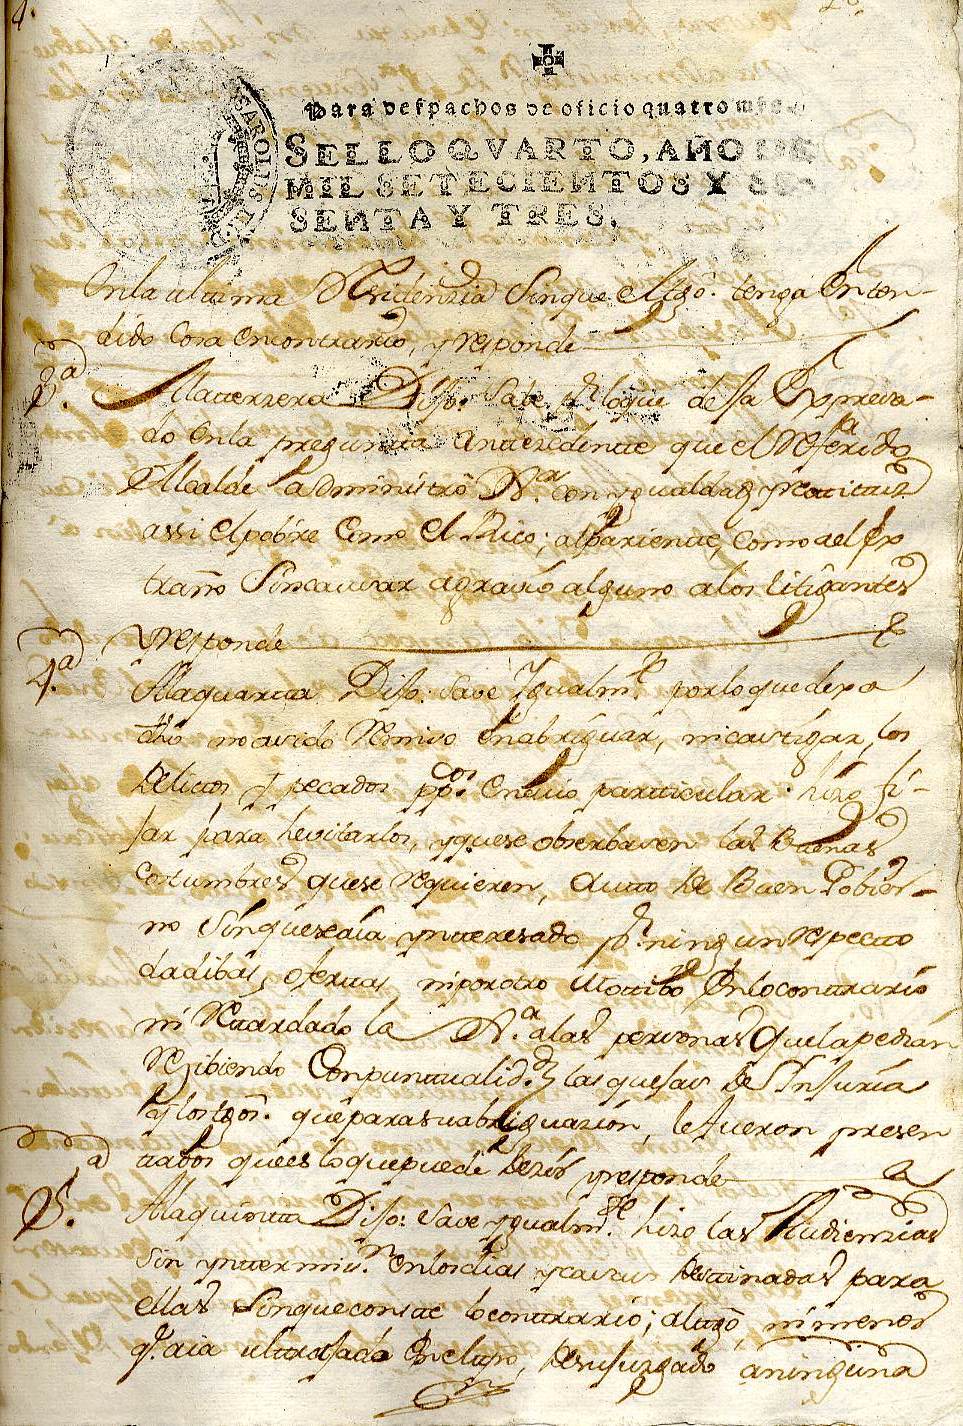 4.
Para despachos de oficio quatro mrs.
SELLO QVARTO, AÑO DE
MIL SETECIENTOS Y SE-
SENTA Y TRES.
CAROLUS III D
Enla ultima Residenzia Sinque el tgo. tenga Enten-
dido Cosa encontrario, y responde
3.a
Alaterzera Dijo: Save pr. loque desa Expresa-
do enla pregunta antezedente que el Referido
Alcalde administró Jta. con ygualdad y rectitud
assi el pobre como el Rico; al pariente, como al ex
traño Sincausar agravio alguno alos litigantes
y responde
4.a
Alaquarta Dijo: Save Igualmte. porlo que depo
dho no avido Remiso Enabriguar, nicastigar, los
Delictos y pecados ppcos. en cuio particular hizo fi-
jar para hevitarlos, yquese obserbasen las Buenas
costumbres quese requieren, Autto de Buen Gobier-
no Sinquesea ynteresado pr. ningun respecto
dadibas, ofertas niporotro Motibo Enlocontrario
ni Retardado la Jta. alas personas Quelapedian
Rezibiendo Conpuntualidd. las quejas de Injuria
y los tgos. queparasuabriguazion, lefueron presen
tados quees loquepuede Dezir y responde
5.a
Alaquinta Dijo: Save ygualmte. hizo las Audienzias
sin yntermisn. enlosdias y casas Destinadas para
ellas Sinqueconste locontrario; altgo, nimenos
q. aia ultrajado Enelaso, Desujuzgado aninguna